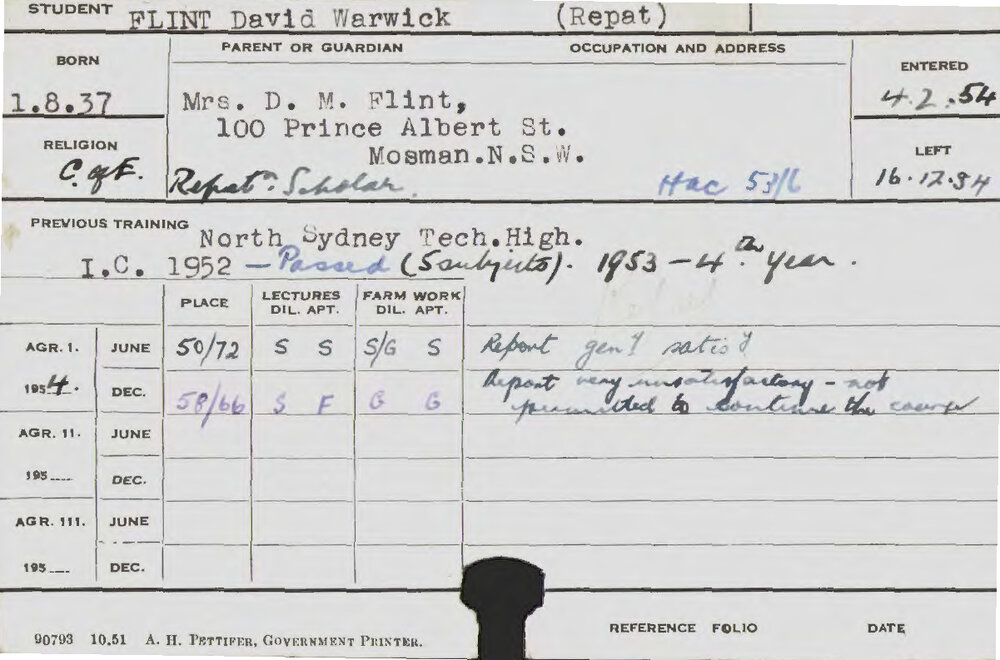 STUDENT FLINT David Warwick (Repat)
BORN PARENT OR GUARDIAN OCCUPATION AND ADDRESS ENTERED
1.8.37 Mrs. D. M. Flint, 4.2.54
100 Prince Albert St.
RELIGION Mosman.N.S.W. LEFT
C. of E. Repatn. Scholar. Hac 53/6 16.12.54
PREVIOUS TRAINING North Sydney Tech.High.
I.C. 1952 - Passed (5 subjects). 1953 - 4th year.
PLACE LECTURES FARM WORK
DIL. APT. DIL. APT.
AGR. 1. JUNE 50/72 S S S/G S Report gen'l satis'y
1954. DEC. 58/66 S F G G Report very unsatisfactory - not
permitted to continue the course
AGR. 11. JUNE
195 ---- DEC.
AGR. 111. JUNE
195 ---- DEC.
REFERENCE FOLIO DATE
90793 10.51 A. H. PETTIFER, GOVERNMENT PRINTER.